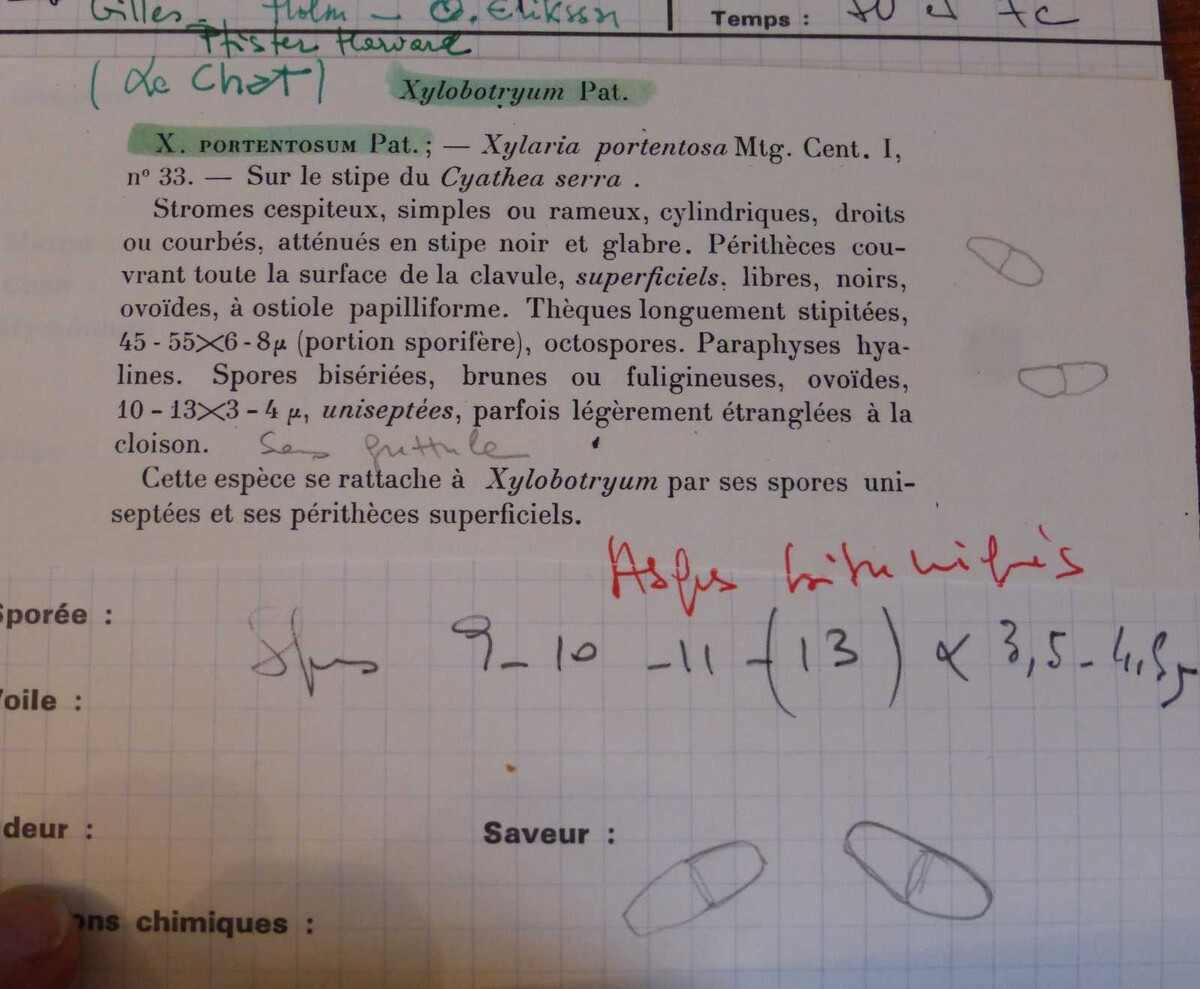 Gilles - Holm - O. Eriksson
Temps :
Pfister Harvard
(Le Chat)
Xylobotryum Pat.
X. PORTENTOSUM Pat. ; — Xylaria portentosa Mtg. Cent. I,
nº 33. — Sur le stipe du Cyathea serra .
Stromes cespiteux, simples ou rameux, cylindriques, droits
ou courbés, atténués en stipe noir et glabre. Périthèces cou-
vrant toute la surface de la clavule, superficiels, libres, noirs,
ovoïdes, à ostiole papilliforme. Thèques longuement stipitées,
45 - 55×6 - 8µ (portion sporifère), octospores. Paraphyses hya-
lines. Spores bisériées, brunes ou fuligineuses, ovoïdes,
10 - 13×3 - 4 µ, uniseptées, parfois légèrement étranglées à la
cloison. Sans guttule
Cette espèce se rattache à Xylobotryum par ses spores uni-
septées et ses périthèces superficiels.
Asques bituniqués
Sporée :
Spores 9 - 10 - 11 - (13) × 3,5 - 4,5
Voile :
deur :
Saveur :
ons chimiques :